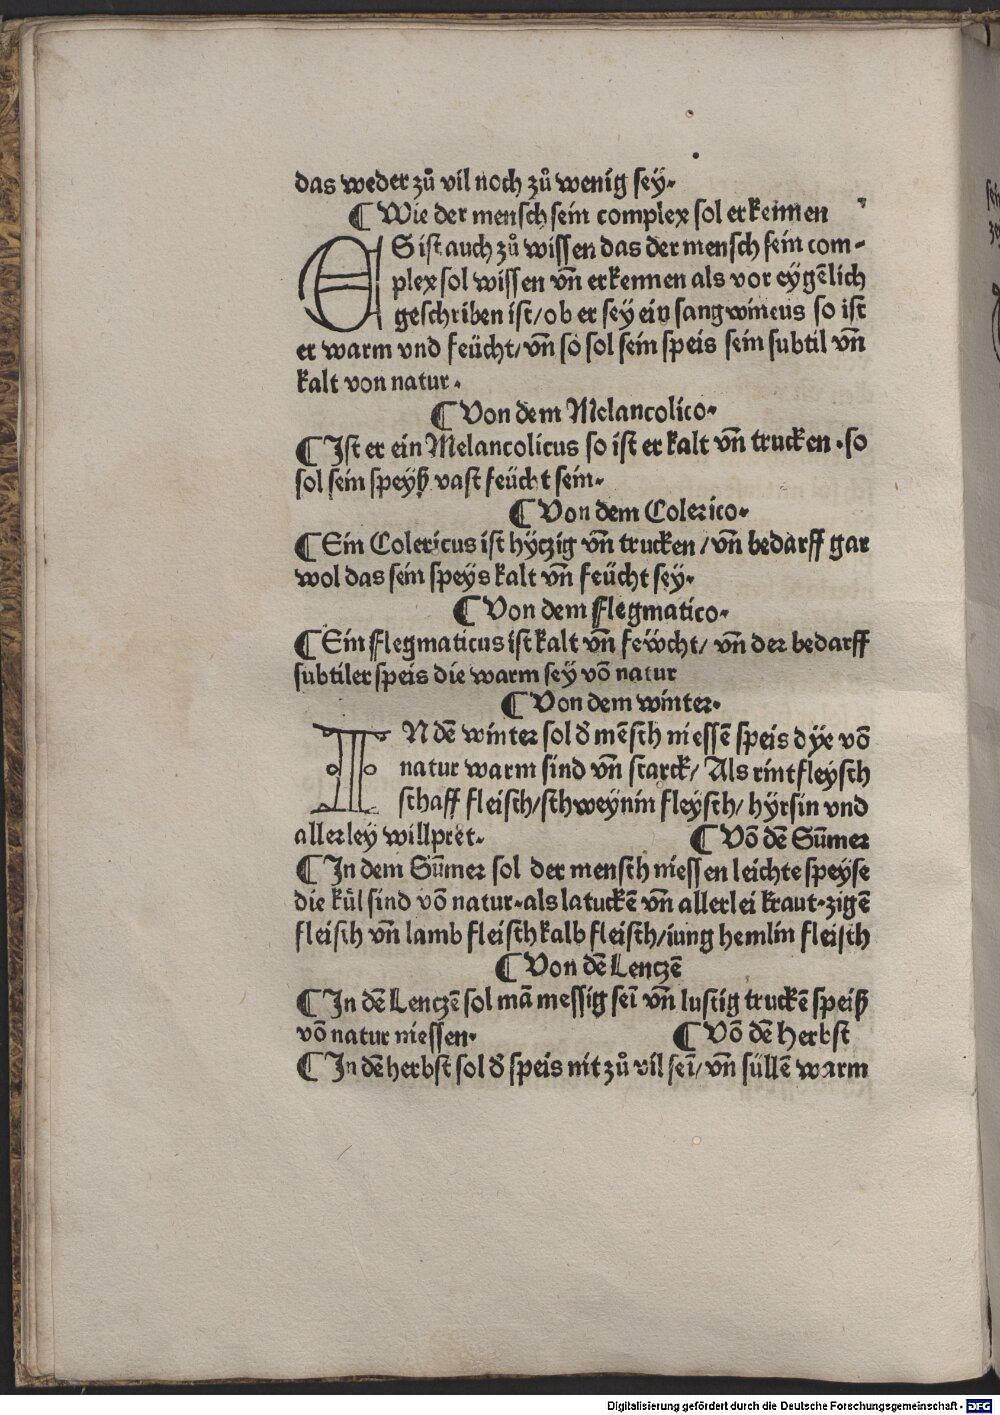 das weder zuͦ vil noch zuͦ wenig sey.
¶ Wie der mensch sein complex sol erkennen
ES ist auch zuͦ wissen das der mensch sein com-
plex sol wissen vñ erkennen als vor eygẽlich
geschriben ist/ ob er sey ein sangwineus so ist
er warm vnd feücht/ vñ so sol sein speis sein subtil vñ
kalt von natur.
¶ Von dem Melancolico.
¶ Ist er ein Melancolicus so ist er kalt vñ trucken. so
sol sein speyß vast feücht sein.
¶ Von dem Colerico.
¶ Ein Colericus ist hytzig vñ trucken/ vñ bedarff gar
wol das sein speys kalt vñ feücht sey.
¶ Von dem flegmatico.
¶ Ein flegmaticus ist kalt vñ fewcht/ vñ der bedarff
subtiler speis die warm sey võ natur
¶ Von dem winter.
IN dẽ winter sol d̕ mẽsch niessẽ speis dÿe võ
natur warm sind vñ starck/ Als rintfleysch
schaff fleisch/ schweynin fleysch/ hyrsin vnd
allerley willpret. ¶ Võ dẽ Sũmer
¶ In dem Sũmer sol der mensch niessen leichte speyse
die kuͤl sind võ natur. als latuckẽ vñ allerlei kraut. zigẽ
fleisch vñ lamb fleisch kalb fleisch/ iung hemlin fleisch
¶ Von dẽ Lentzẽ
¶ In dẽ Lentzẽ sol mã messig seĩ vñ lustig truckẽ speiß
võ natur niessen. ¶ Võ dẽ herbst
¶ In dẽ herbst sol d̕ speis nit zuͦ vil seĩ/ vñ süllẽ warm
Digitalisierung gefördert durch die Deutsche Forschungsgemeinschaft - DFG